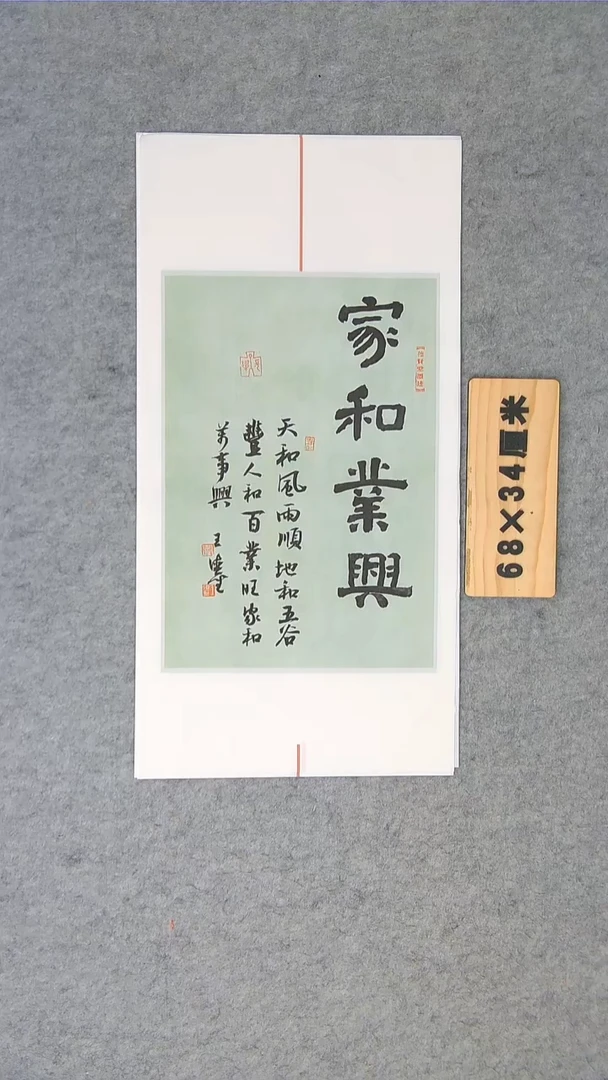 家和業興
天和風雨順地和五谷
豐人和百業旺家和
萬事興
王
68×34厘米